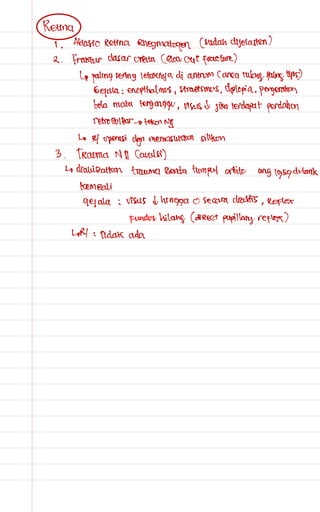 Retina
1. Ablasio Retina Rhegmatogen (sudah dijelaskan)
2. Fraktur dasar orbita (Blow out fracture)
↳ paling sering letaknya di antrum (area tulang paling tipis)
Gejala : enopthalmus, strabismus, diplopia, pergerakan
bola mata terganggu, visus ↓ jika terdapat perdarahan
retrobulbar → tekan NII
↳ R/ operasi dgn memasukkan silikon
3. Trauma N II (avulsi)
↳ diakibatkan trauma Benda tumpul orbita
kembali
gejala : visus ↓ hingga 0 secara drastis, Reflex
Fundus hilang (direct pupillary reflex)
↳ R/ : Tidak ada